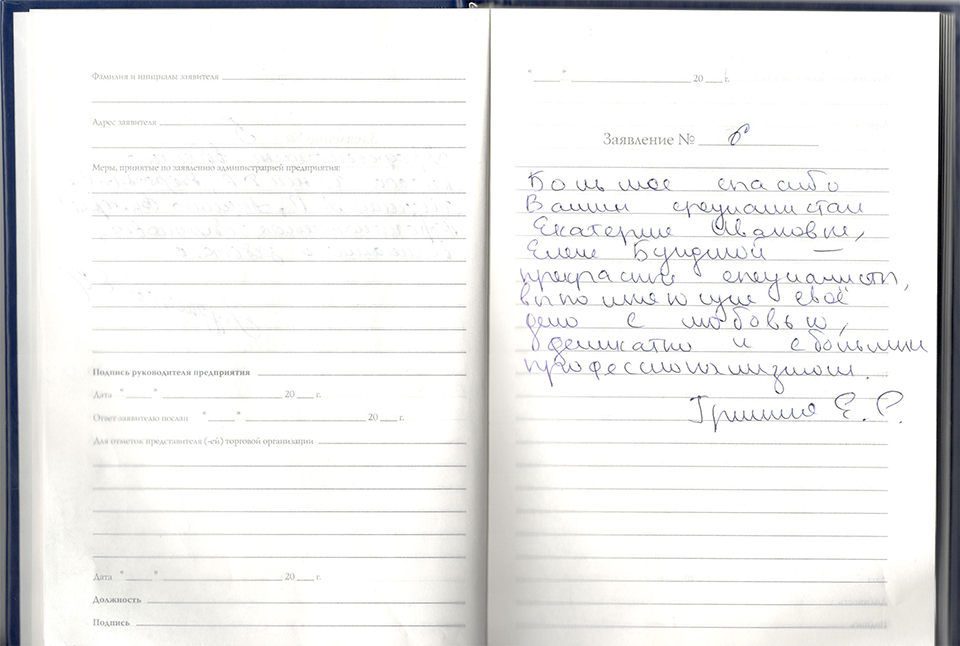 Фамилия и инициалы заявителя
Адрес заявителя
Меры, принятые по заявлению администрацией предприятия:
Подпись руководителя предприятия
Дата " " 20 г.
Ответ заявителю послан " " 20 г.
Для отметок представителя (-ей) торговой организации
Дата " " 20 г.
Должность
Подпись
" " 20 г.
Заявление № 6
Большое спасибо
Вашим специалистам
Екатерине Ивановне,
Елене Бундиной —
прекрасные специалисты,
выполняющие своё
дело с любовью,
деликатно и с большим
профессионализмом.
Гришина Е. Р.